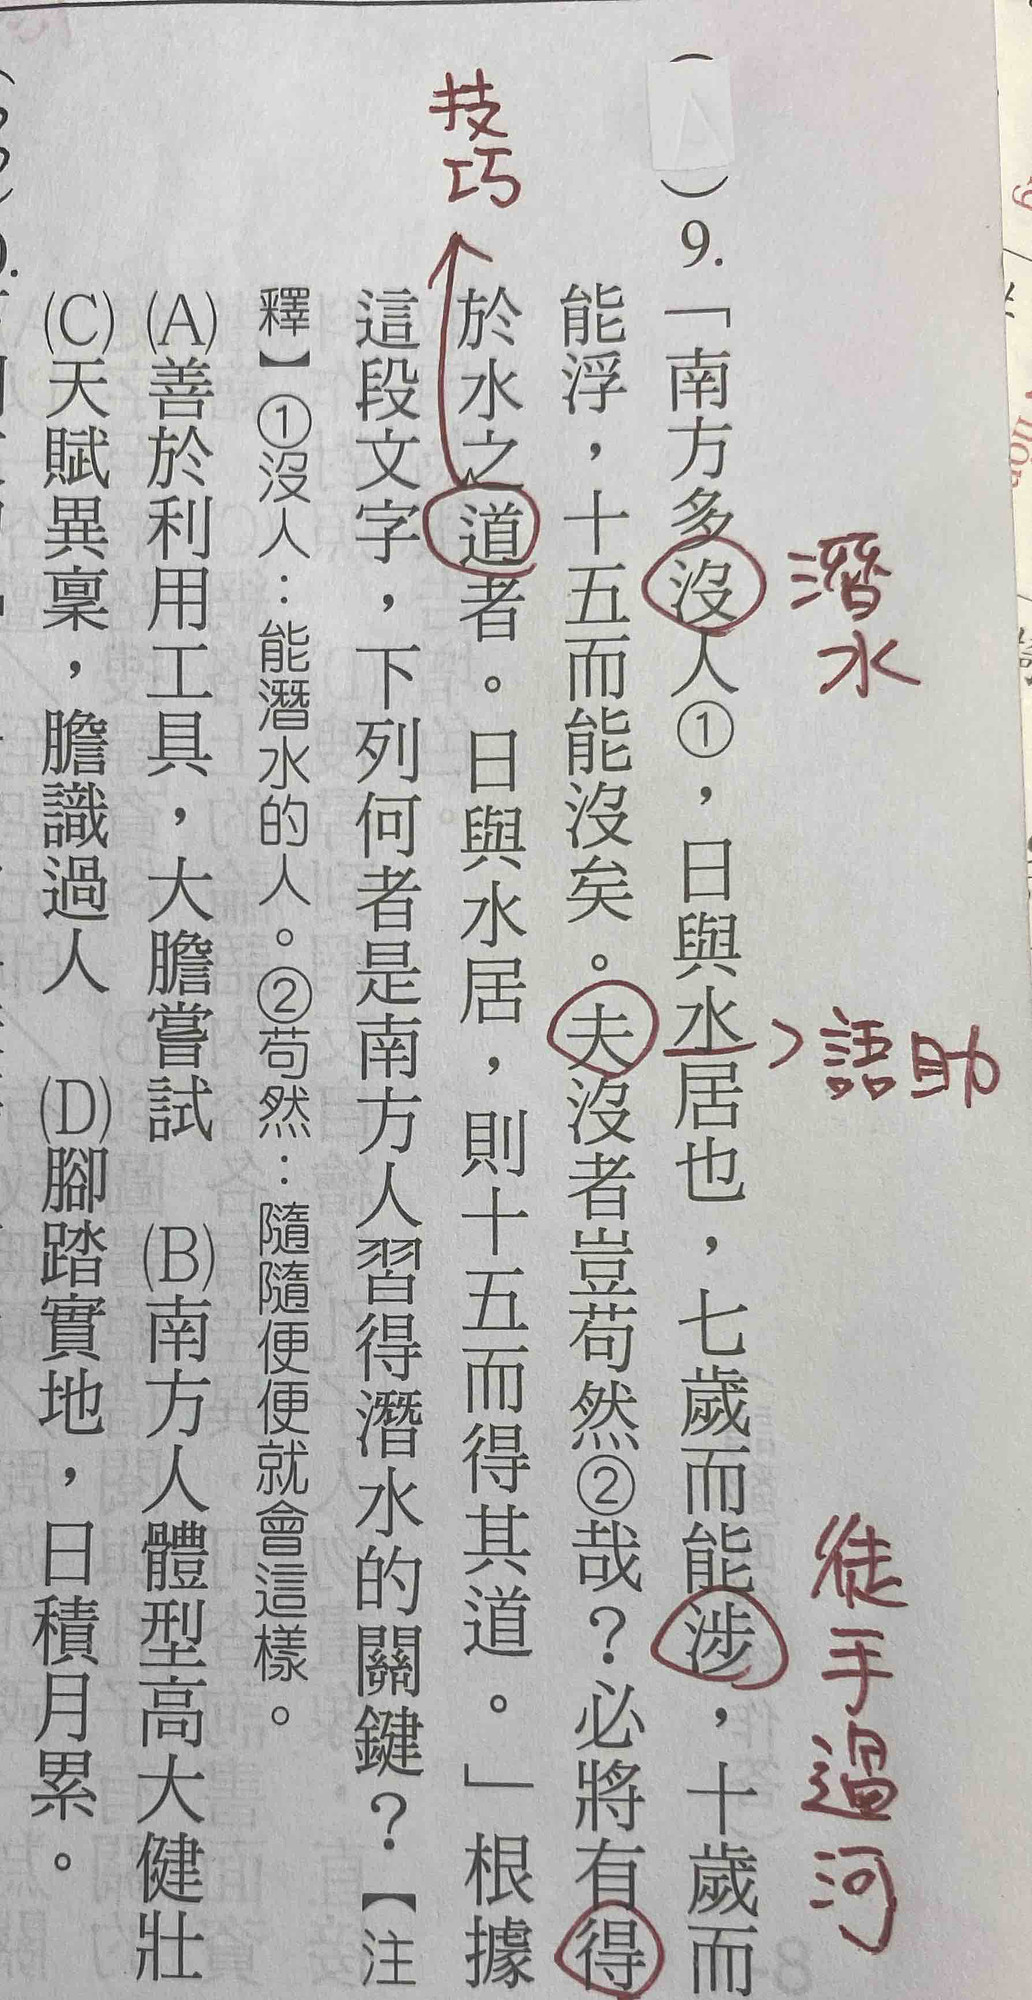 9.「南方多沒人①，日與水居也，七歲而能涉，十歲而
能浮，十五而能沒矣。夫沒者豈苟然②哉？必將有得
於水之道者。日與水居，則十五而得其道。」根據
這段文字，下列何者是南方人習得潛水的關鍵？【注
釋】①沒人：能潛水的人。②苟然：隨隨便便就會這樣。
(A)善於利用工具，大膽嘗試 (B)南方人體型高大健壯
(C)天賦異稟，膽識過人 (D)腳踏實地，日積月累。
潛水
語助
徒手過河
技巧